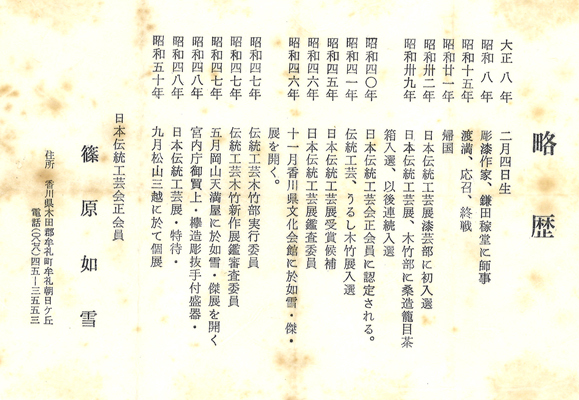 略歴
大正八年 二月四日生
昭和八年 彫漆作家、鎌田稼堂に師事
昭和十五年 渡満、応召、終戦
昭和廿一年 帰国
昭和卅二年 日本伝統工芸展漆芸部に初入選
昭和卅九年 日本伝統工芸展、木竹部に桑造籠目茶
箱入選、以後連続入選
昭和四〇年 日本伝統工芸会正会員に認定される。
昭和四一年 伝統工芸、うるし木竹展入選
昭和四五年 日本伝統工芸展受賞候補
昭和四六年 日本伝統工芸展鑑査委員
昭和四六年 十一月香川県文化会館に於如雪・傑・
展を開く。
昭和四七年 伝統工芸木竹部実行委員
昭和四七年 伝統工芸木竹新作展鑑審査委員
昭和四七年 五月岡山天満屋に於如雪・傑展を開く
昭和四八年 宮内庁御買上・欅造彫抜手付盛器・
昭和四八年 日本伝統工芸展・特待・
昭和五十年 九月松山三越に於て個展
日本伝統工芸会正会員
篠原如雪
住所 香川県木田郡牟礼町牟礼朝日ケ丘
電話(〇八七八)四五ー三五五三